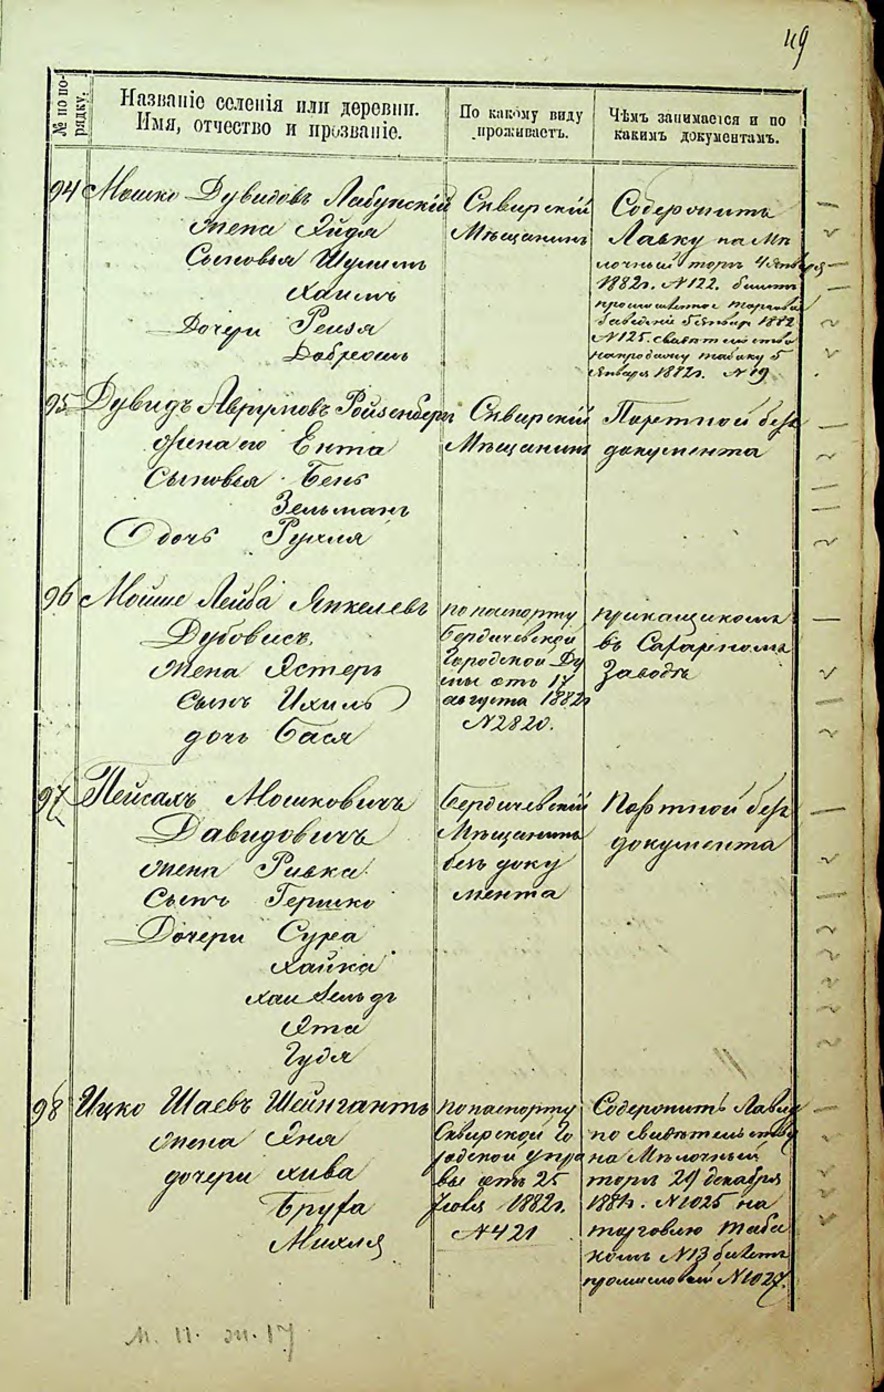 49
№ по по-
рядку.
Названіе селенія или деревни.
Имя, отчество и прозваніе.
По какому виду
проживаетъ.
Чѣмъ занимается и по
какимъ документамъ.
94 Мошко Дувидовъ Лабунскій
жена Хайдя
Сыновья Шулимъ
Хаимъ
Дочери Рейзя
Добресшь
Сквирскій
Мѣщанинъ
Содержитъ
Лавку на Мѣ
лочный торгъ 4 Января
1882г. №122. билетъ
промышленное торговое
заведеніе 5 Январ 1882
№125. свидѣтельство
на продажу табаку 5
Января 1882г. №19
95 Дувидъ Аврумовъ Ройзенбергъ
жена его Ента
Сыновья Бень
Зельманъ
дочь Рухля
Сквирскій
Мѣщанинъ
Портной безъ
документа
96 Мойше Лейба Янкелевъ
Дубовисъ
жена Эстеръ
Сынъ Ихиль
дочь Бася
по паспорту
Бердичевской
Городской Ду
мы отъ 17
августа 1882г
№2820.
прикащикомъ
въ Сахарномъ
Заводѣ
97 Пейсахъ Мошковичъ
Давидовичъ
жена Ривка
Сынъ Гершко
Дочери Сура
Хайка
Хая Зельдъ
Эта
Гудя
Бердичевскій
Мѣщанинъ
безъ доку
мента
Портной безъ
документа
98 Ицко Шаевъ Шейнгантъ
жена Хня
дочери Хива
Бруха
Михля
по паспорту
Сквирской Го
родской упра
вы отъ 25
Іюля 1882г.
№421
Содержитъ Лавку
по свидѣтельству
на Мѣлочный
торгъ 29 декабря
1881г. №1025 на
торговлю таба
комъ №13 билетъ
промысловый №1027.